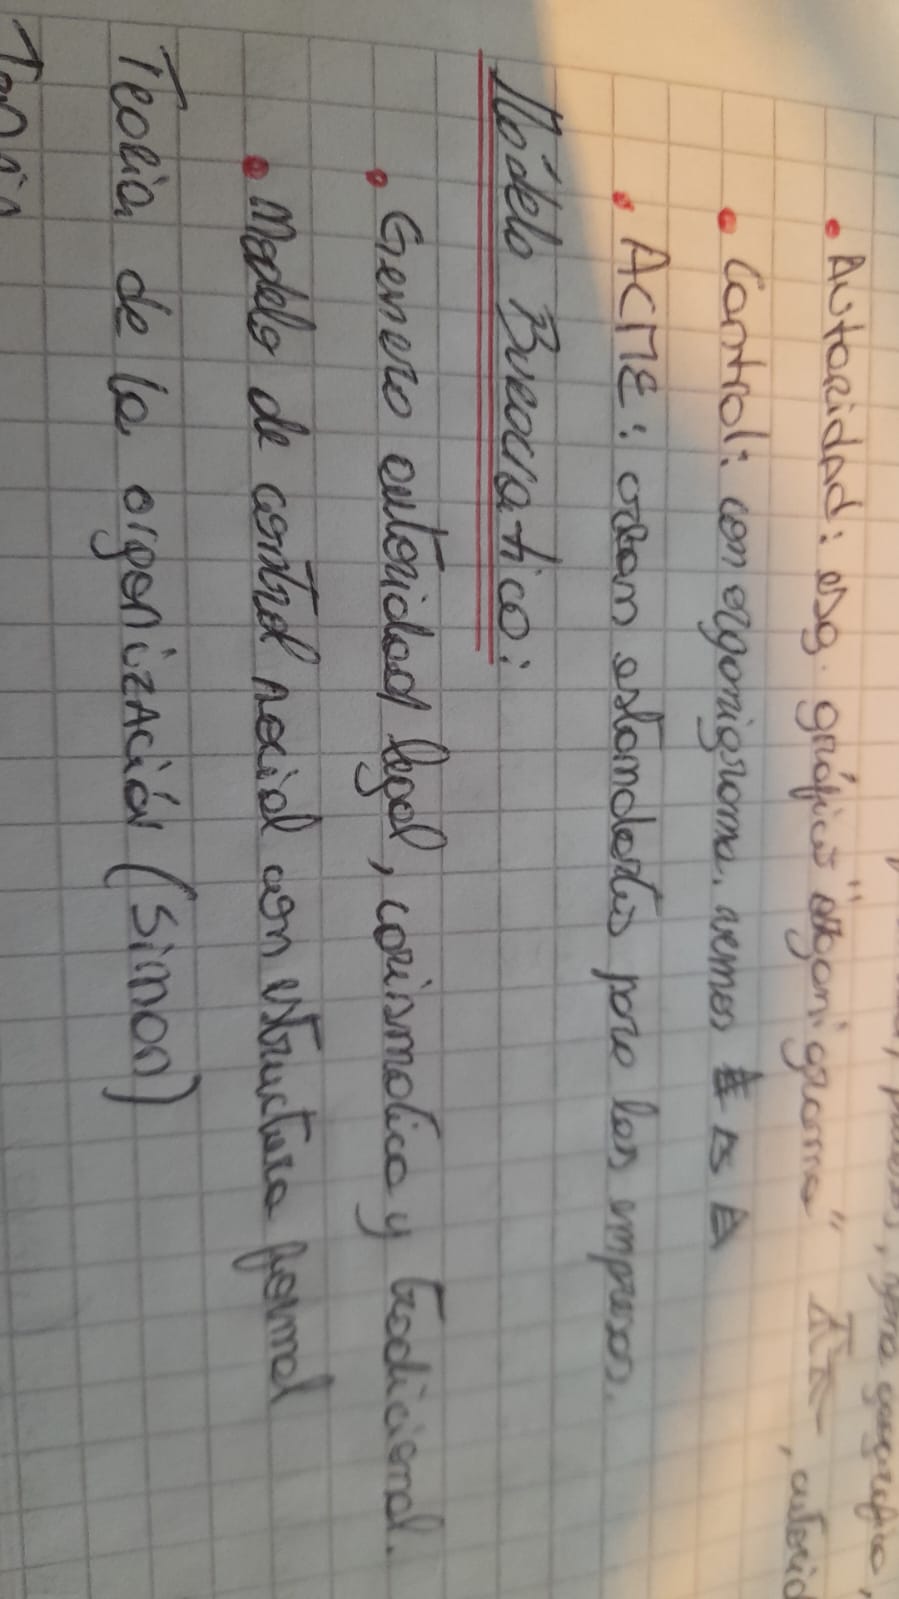 , zona geografica,
• Autoridad: esq. gráfico "organigrama" , autorid
• Control: con organigrama. vemos
• ACME: crean estandartes para las empresas.
Módelo Burocratico:
• Genero autoridad legal, carismatica y tradicional.
• Modelo de control social con estructura formal
Teoria de la organización (Simon)